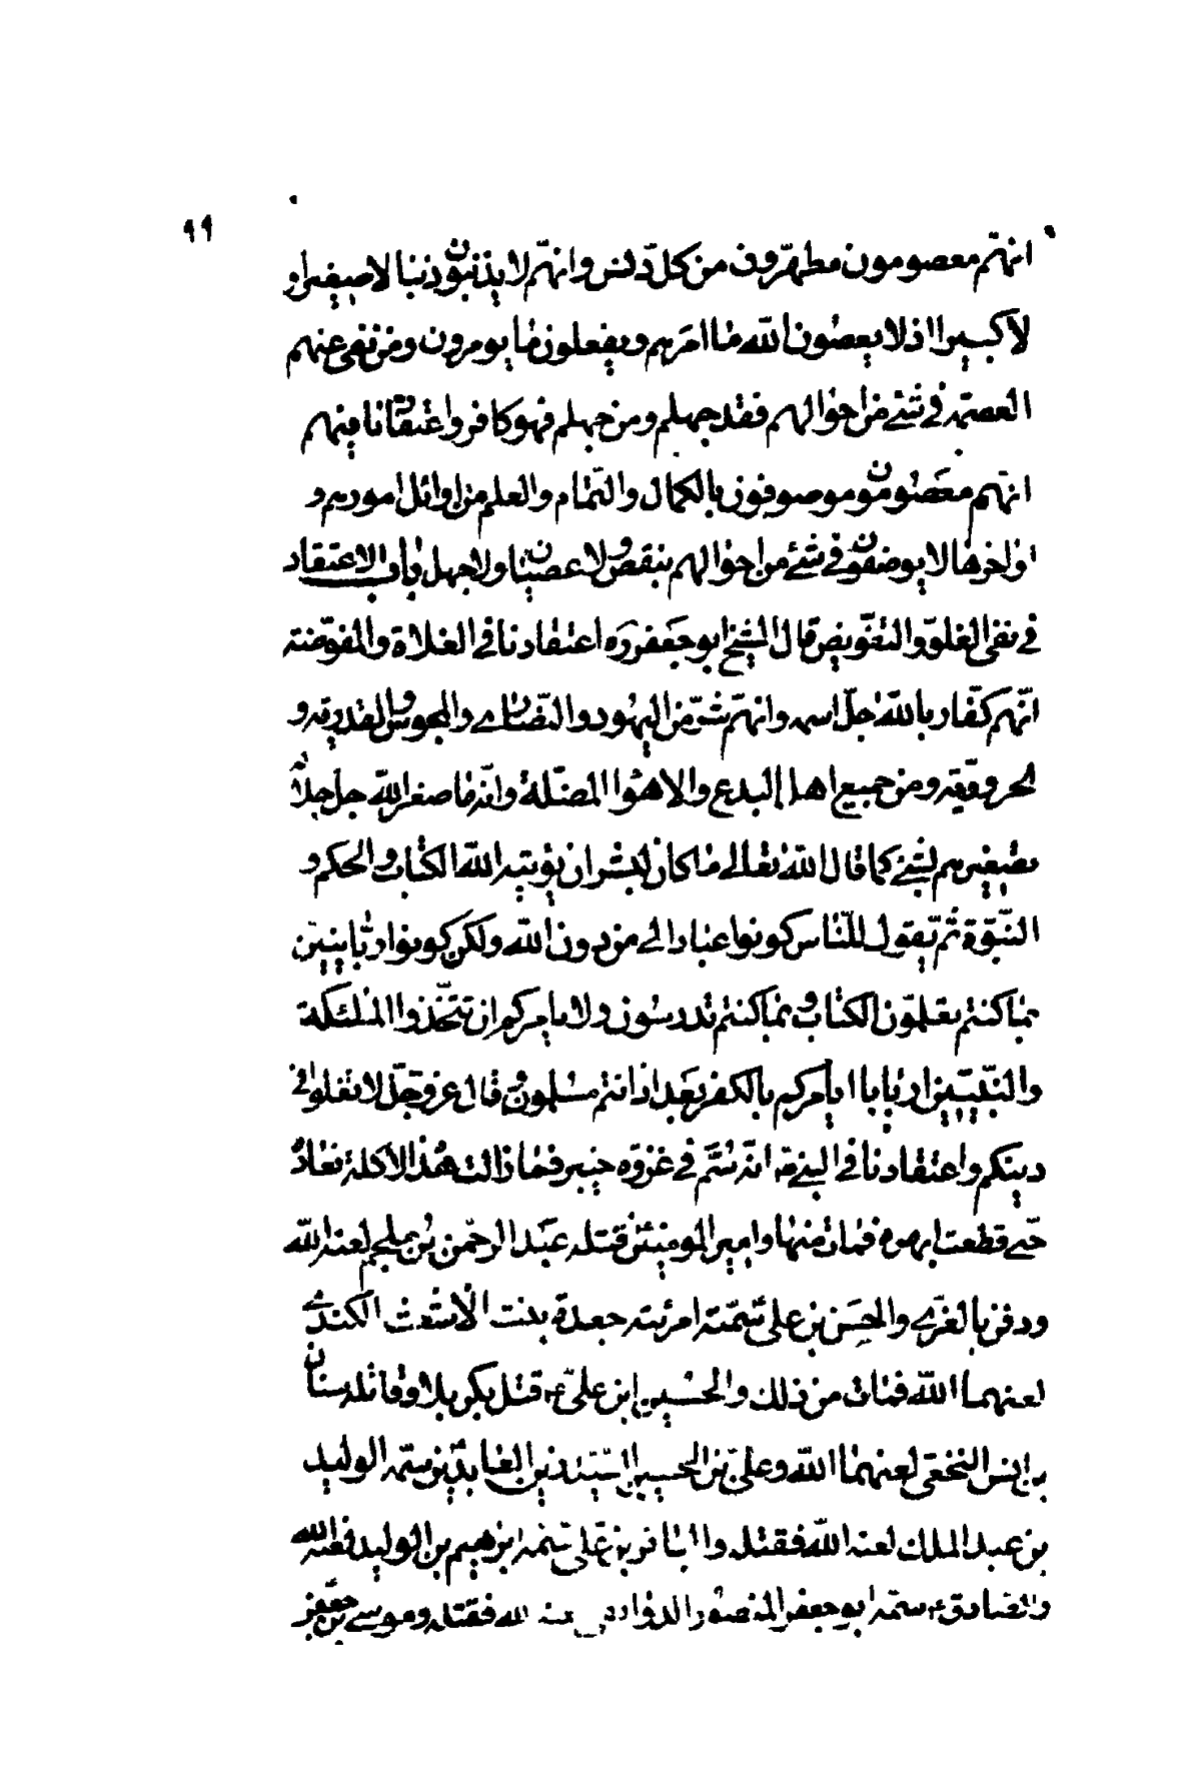 ٩٩
انهّم معصومون مطهّرون من كلّ دنس وانهّم لا يذنبون ذنبا لا صغيرا و
لا كبيرا اذ لا يعصون الله ما امرهم ويفعلون ما يومرون ومن نفى عنهم
العصمة فى شئ من احوالهم فقد جهلهم ومن جهلهم فهو كافر واعتقادنا فيهم
انهّم معصومون موصوفون بالكمال والتّمام والعلم من اوائل امورهم و
اواخرها لا يوصفون فى شئ من احوالهم بنقص ولا عصيان ولا جهل باب الاعتقاد
فى نفى الغلوّ والتفّويض قال الشيخ ابو جعفر ره اعتقادنا فى الغلاة والمفوّضة
انّهم كفّار بالله جلّ اسمه وانهّم شرّ من اليهود والنّصارى والمجوس والقدريّة و
الحروريّة ومن جميع اهل البدع والاهوا المضلّة وانّه ما صغر الله جلّ جلاله
تصغيرهم لشئ كما قال الله تعالى ما كان لبشر ان يؤتيه الله الكتاب والحكم و
النّبوّة ثمّ يقول للنّاس كونوا عبادا لى من دون الله ولكن كونوا ربّانيّين
بما كنتم تعلّمون الكتاب وبما كنتم تدرسون ولا يامركم ان تتّخذوا الملئكة
والنّبيّين اربابا ايأمركم بالكفر بعد اذ انتم مسلمون وقال عزّ وجلّ لا تغلوا فى
دينكم واعتقادنا فى النبىّ انّه سُمّ فى غزوة خيبر فما زالت هذه الاكلة تعادّه
حتّى قطعت ابهره فمات منها وامير المومنين قتله عبد الرحمن بن ملجم لعنه الله
ودفن بالغرى والحسن بن على سمّته امرئته جعدة بنت الاشعث الكندى
لعنهما الله فمات من ذلك والحسين ابن علىّ قتل بكربلا وقاتله سنان
بن انس النخعى لعنهما الله وعلى بن الحسين السّيّد زين العابدين سمّه الوليد
بن عبد الملك لعنه الله فقتله والباقر بن على سمّه ابرهيم بن الوليد لعنه الله
والصادق سمّه ابو جعفر المنصور الدوانيقى لعنه الله فقتله وموسى بن جعفر